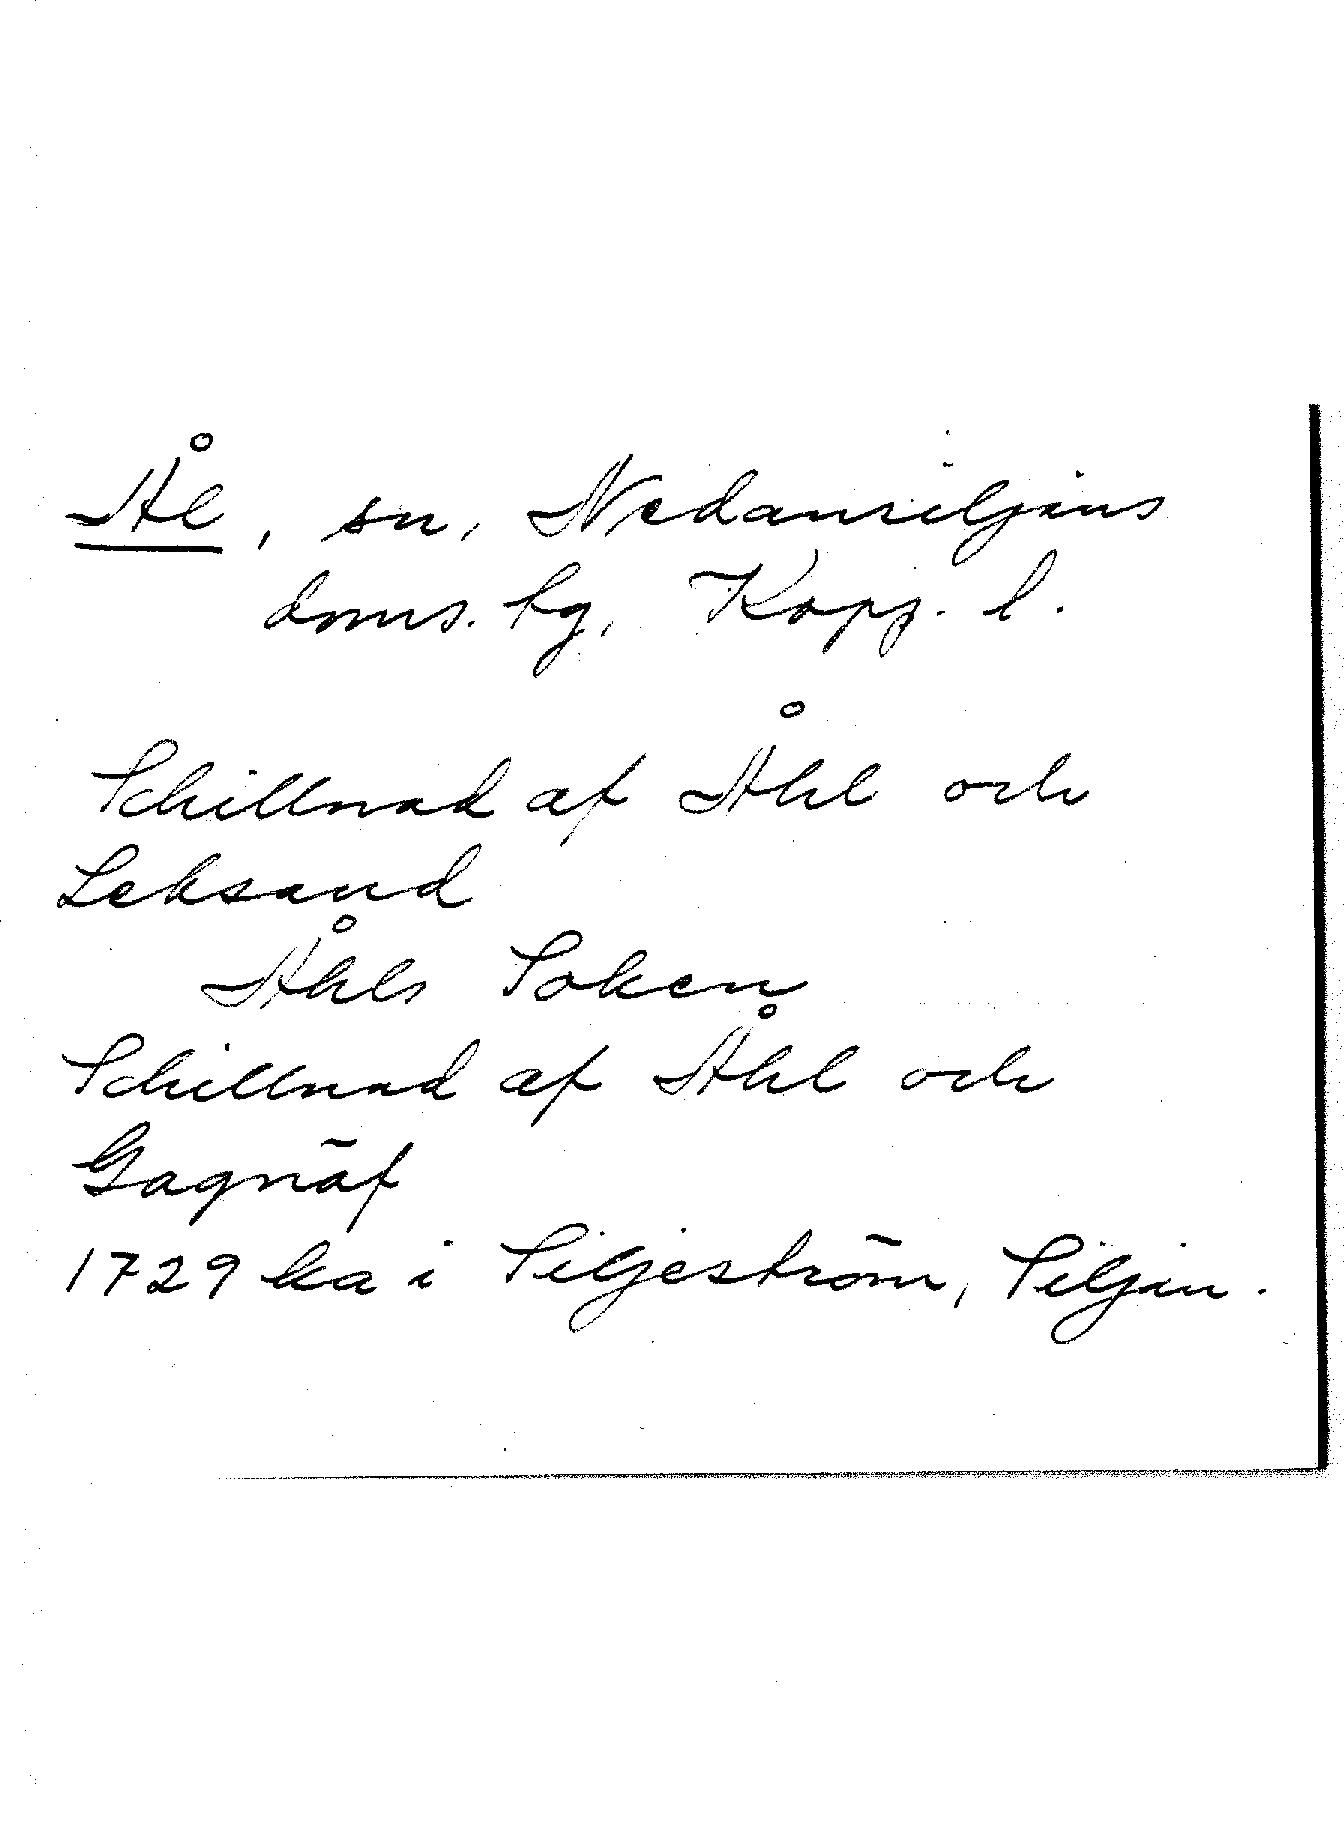 Ål, sn, Nedansiljans
doms.hg, Kopp. l.
Schillnad af Åhl och
Leksand
Åhls Soken
Schillnad af Åhl och
Gagnäf
1729 ka i Siljeström, Siljan.